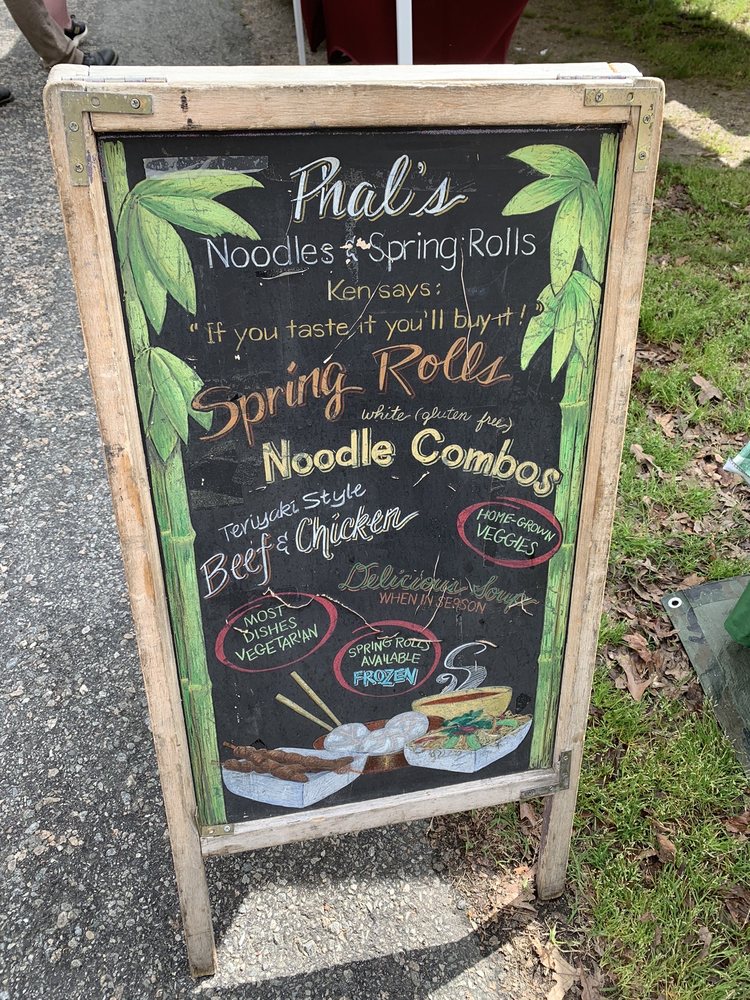 Phal's
Noodles & Spring Rolls
Ken says:
"If you taste it you'll buy it!"
Spring Rolls
white (gluten free)
Noodle Combos
Teriyaki Style
Beef & Chicken
HOME-GROWN
VEGGIES
Delicious Soups
WHEN IN SEASON
MOST
DISHES
VEGETARIAN
SPRING ROLLS
AVAILABLE
FROZEN